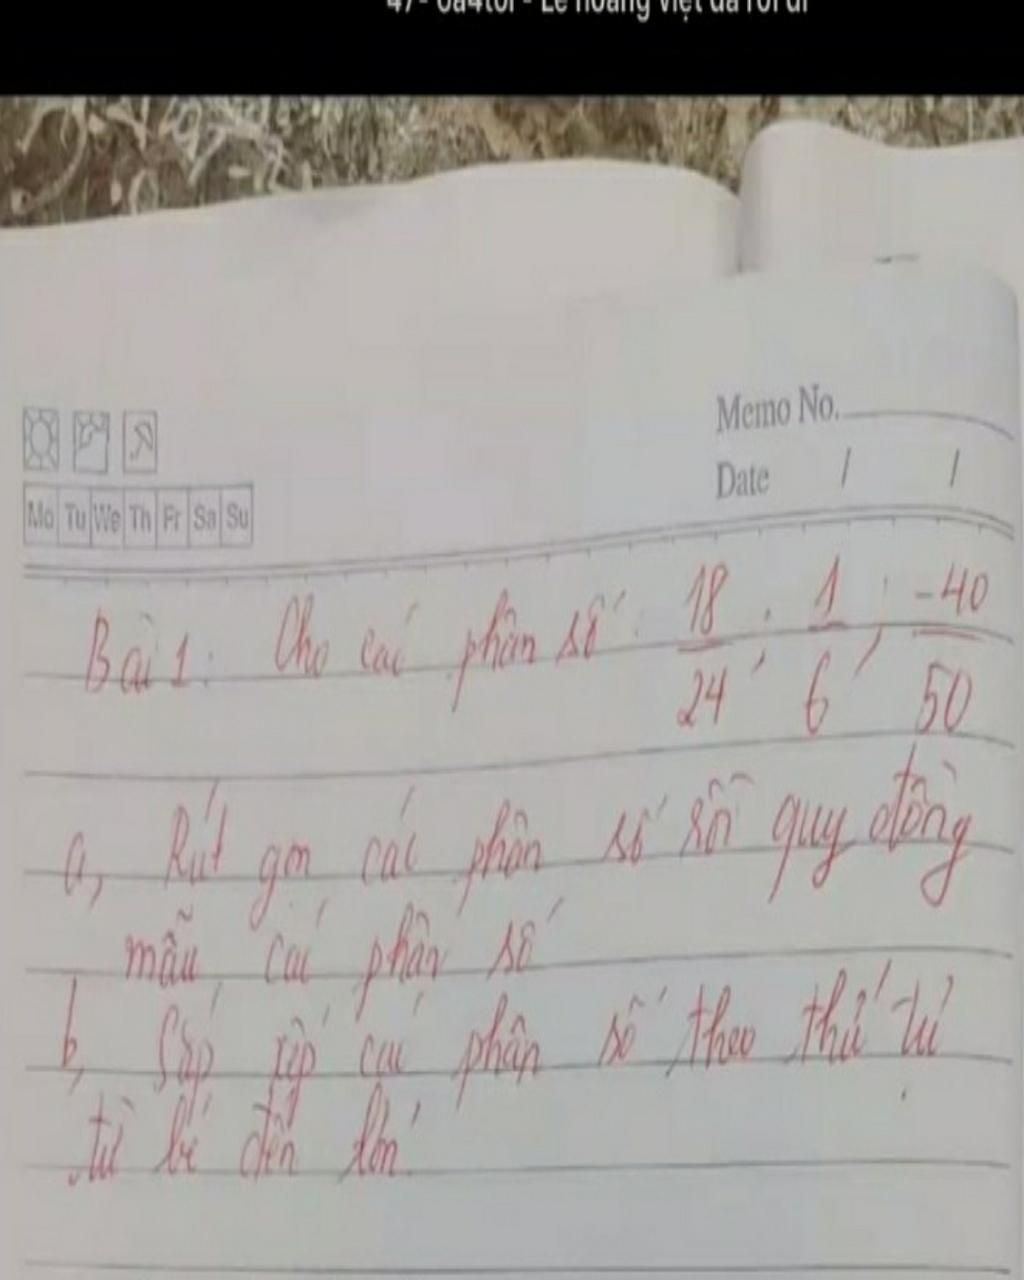 Memo No.
Date / /
Mo Tu We Th Fr Sa Su
Bài 1: Cho các phân số: 18/24; 1/6; -40/50
a, Rút gọn các phân số rồi quy đồng
mẫu các phân số
b, Sắp xếp các phân số theo thứ tự
từ bé đến lớn